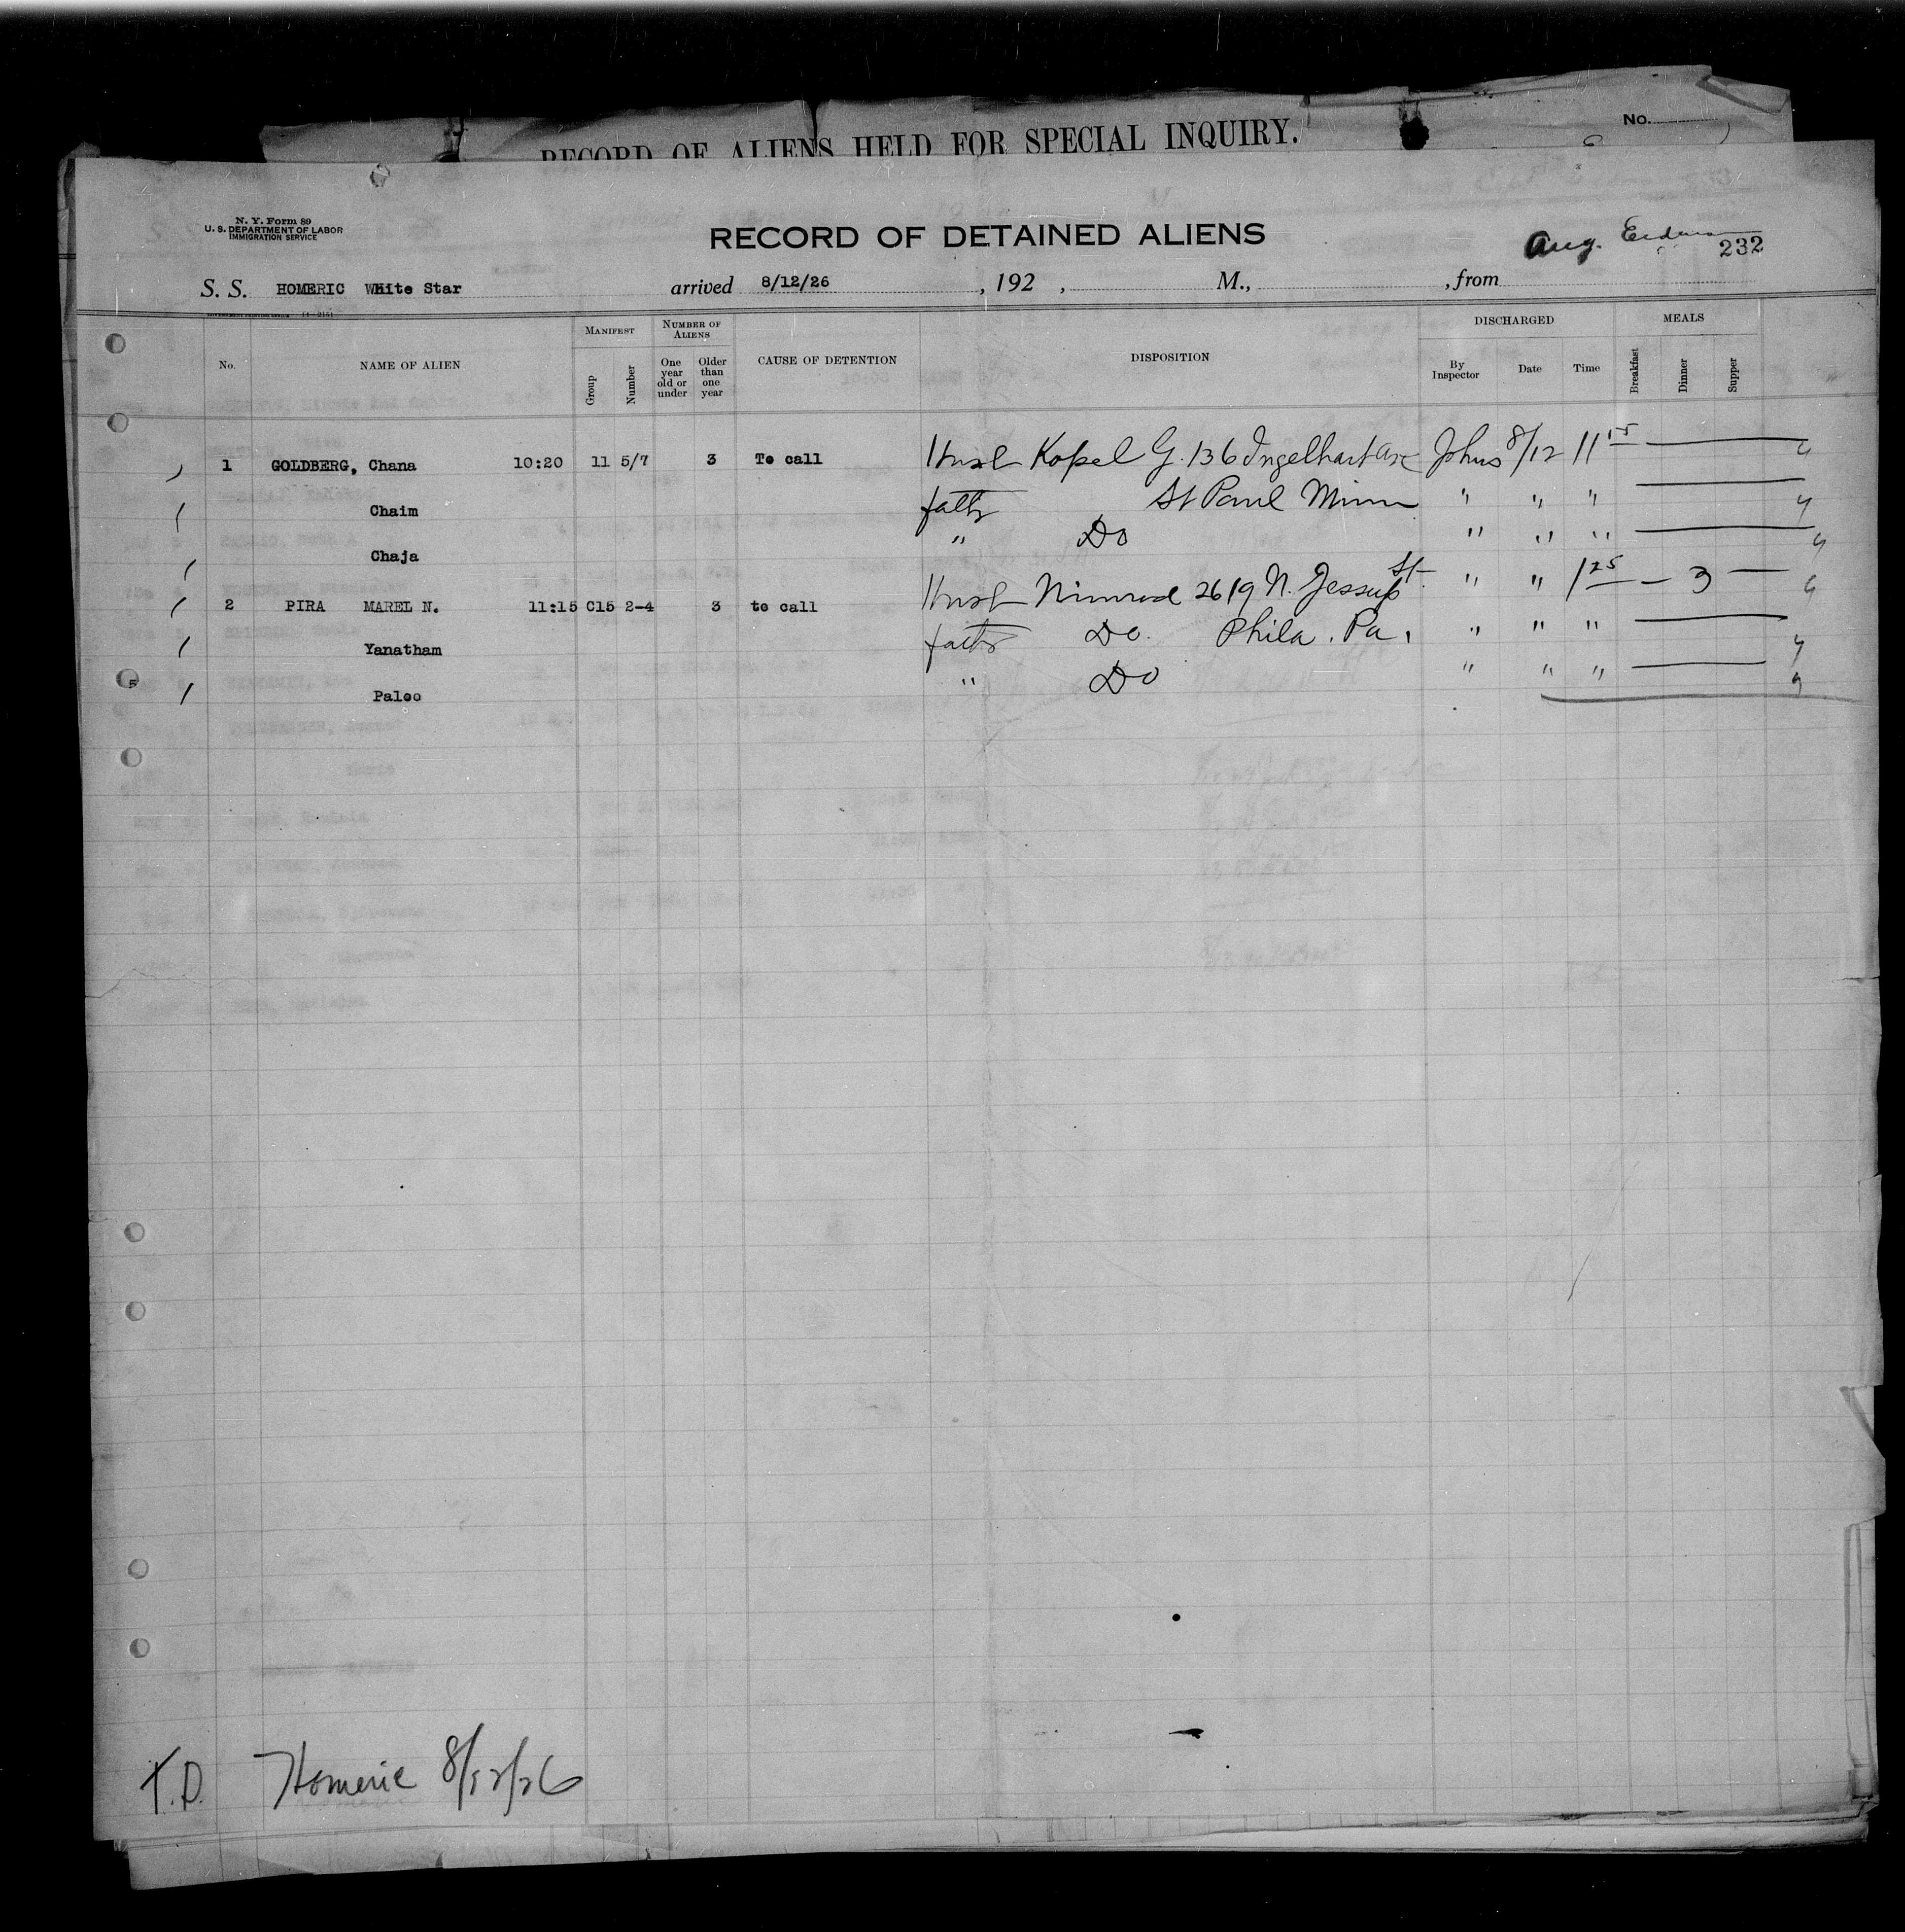 RECORD OF ALIENS HELD FOR SPECIAL INQUIRY.
No.
N. Y. Form 89
U. S. DEPARTMENT OF LABOR
IMMIGRATION SERVICE
RECORD OF DETAINED ALIENS
Aug.
232
S. S. HOMERIC White Star arrived 8/12/26, 192 , M., , from
No. NAME OF ALIEN MANIFEST Group Number NUMBER OF ALIENS One year old or under Older than one year CAUSE OF DETENTION DISPOSITION DISCHARGED By Inspector Date Time MEALS Breakfast Dinner Supper
1 GOLDBERG, Chana 10:20 11 5/7 3 To call Husb Kopel G. 136 Ingelhart Ave Johns 8/12 11 15
Chaim fath St Paul Minn " " "
Chaja " Do " " "
2 PIRA MAREL N. 11:15 C15 2-4 3 to call Husb Nimrod 2619 N. Jessup St. " " 1 25 — 3 —
Yanatham fath Do. Phila. Pa. " " "
5 Paloo " Do " " "
T.D. Homeric 8/12/26